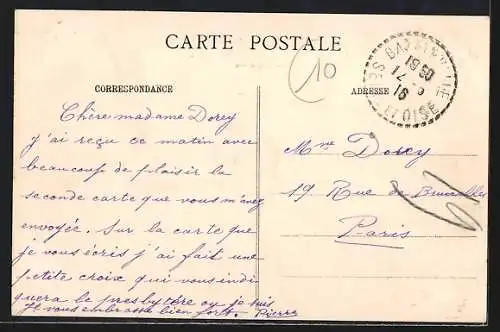 CARTE POSTALE
10
CORRESPONDANCE
ADRESSE
SEINE-ET-OISE
Chère madame Dorey
J'ai reçu ce matin avec
beaucoup de plaisir la
seconde carte que vous m'avez
envoyée. Sur la carte que
je vous écris j'ai fait une
petite croix qui vous indi
quera le presbytère ou je suis
Je vous embrasse bien fort. Pierre
Mme Dorey
19 Rue de Bruxelles
Paris